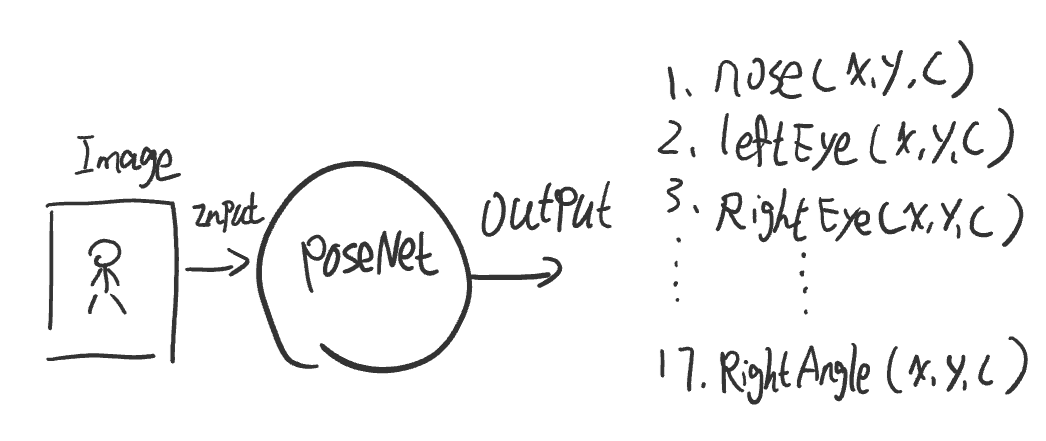 Image
Input
poseNet
output
1. nose(x,y,c)
2. leftEye(x,y,c)
3. RightEye(x,y,c)
17. RightAngle(x,y,c)